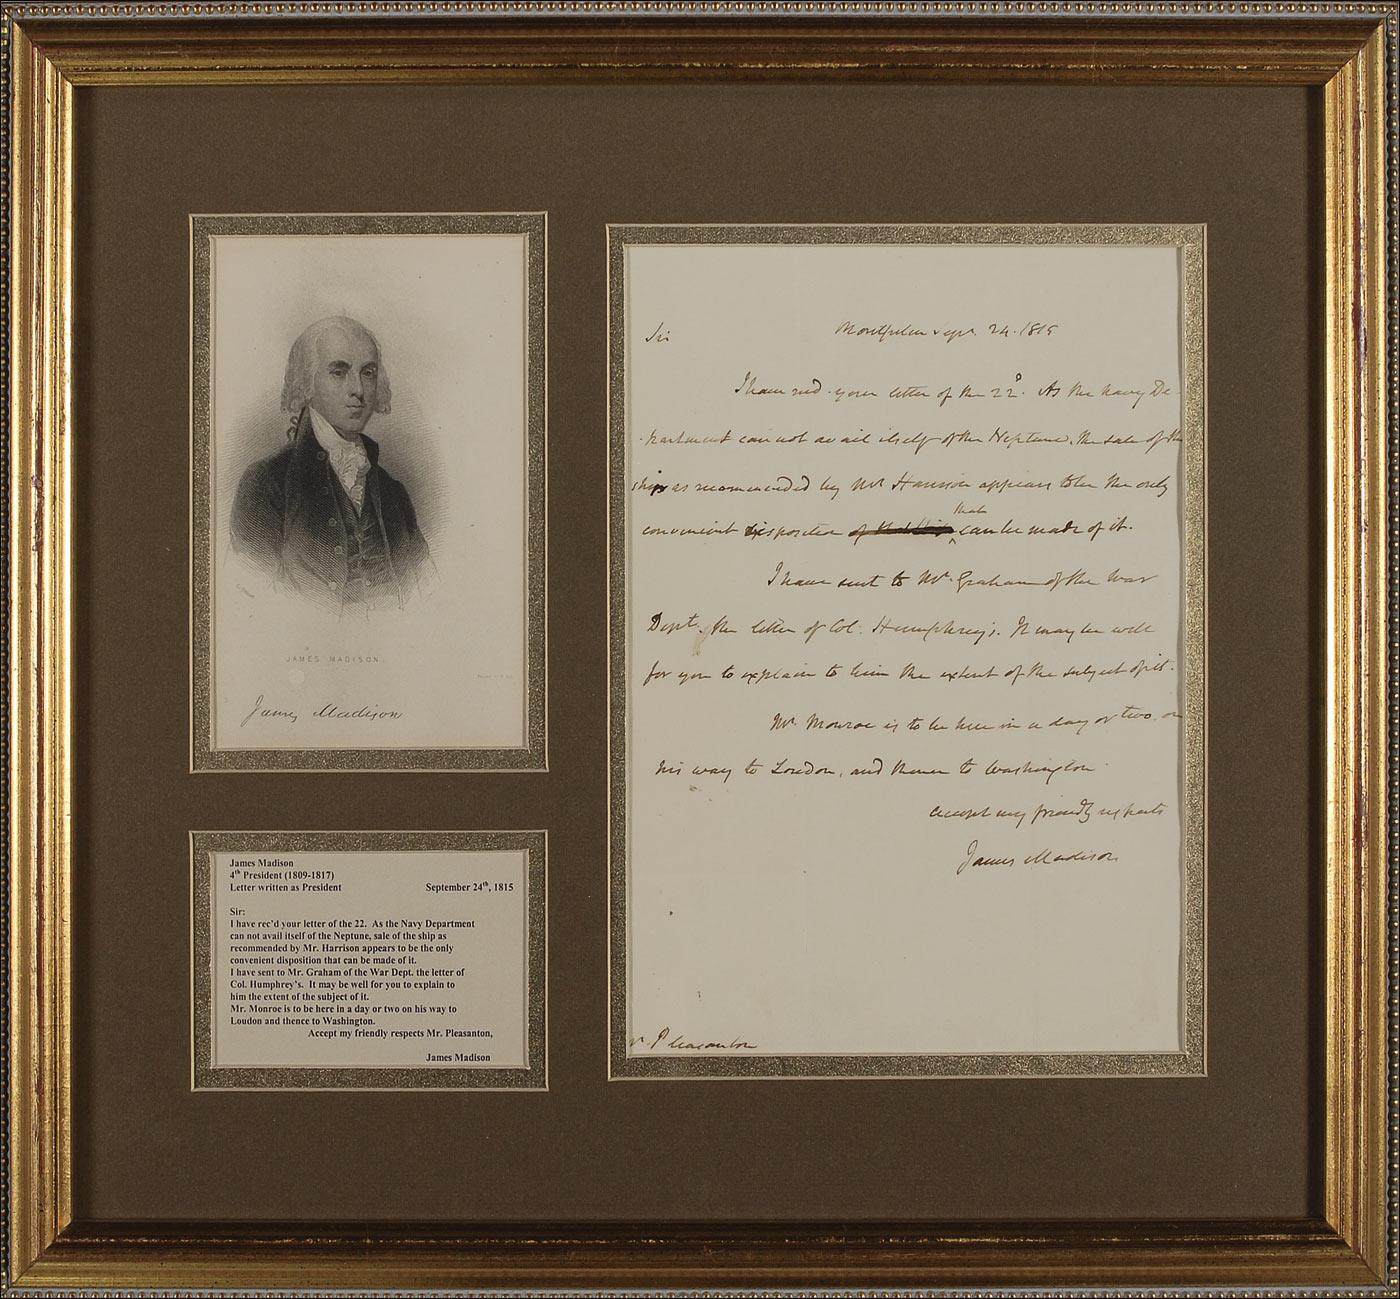 JAMES MADISON.
James Madison
James Madison
4th President (1809-1817)
Letter written as President September 24th, 1815
Sir:
I have rec'd your letter of the 22. As the Navy Department
can not avail itself of the Neptune, sale of the ship as
recommended by Mr. Harrison appears to be the only
convenient disposition that can be made of it.
I have sent to Mr. Graham of the War Dept. the letter of
Col. Humphrey's. It may be well for you to explain to
him the extent of the subject of it.
Mr. Monroe is to be here in a day or two on his way to
Loudon and thence to Washington.
Accept my friendly respects Mr. Pleasanton,
James Madison
Sir Montpelier Sepr. 24. 1815
I have recd. your letter of the 22d. As the Navy De-
partment can not avail itself of the Neptune, the sale of the
ship as recommended by Mr Harrison appears to be the only
convenient disposition of that can be made of it.
I have sent to Mr. Graham of the War
Dept. the letter of Col. Humphreys. It may be well
for you to explain to him the extent of the subject of it.
Mr. Monroe is to be here in a day or two, on
his way to Loudon, and thence to Washington.
Accept my friendly respects
James Madison
Pleasanton